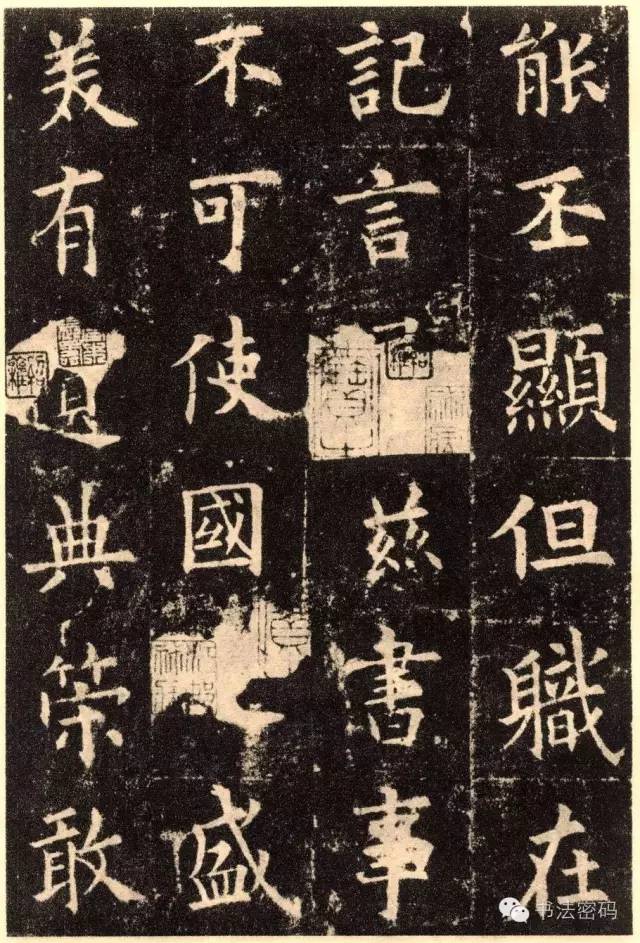 能丕顯但職在
記言茲書事
不可使國盛
美有典策敢
书法密码